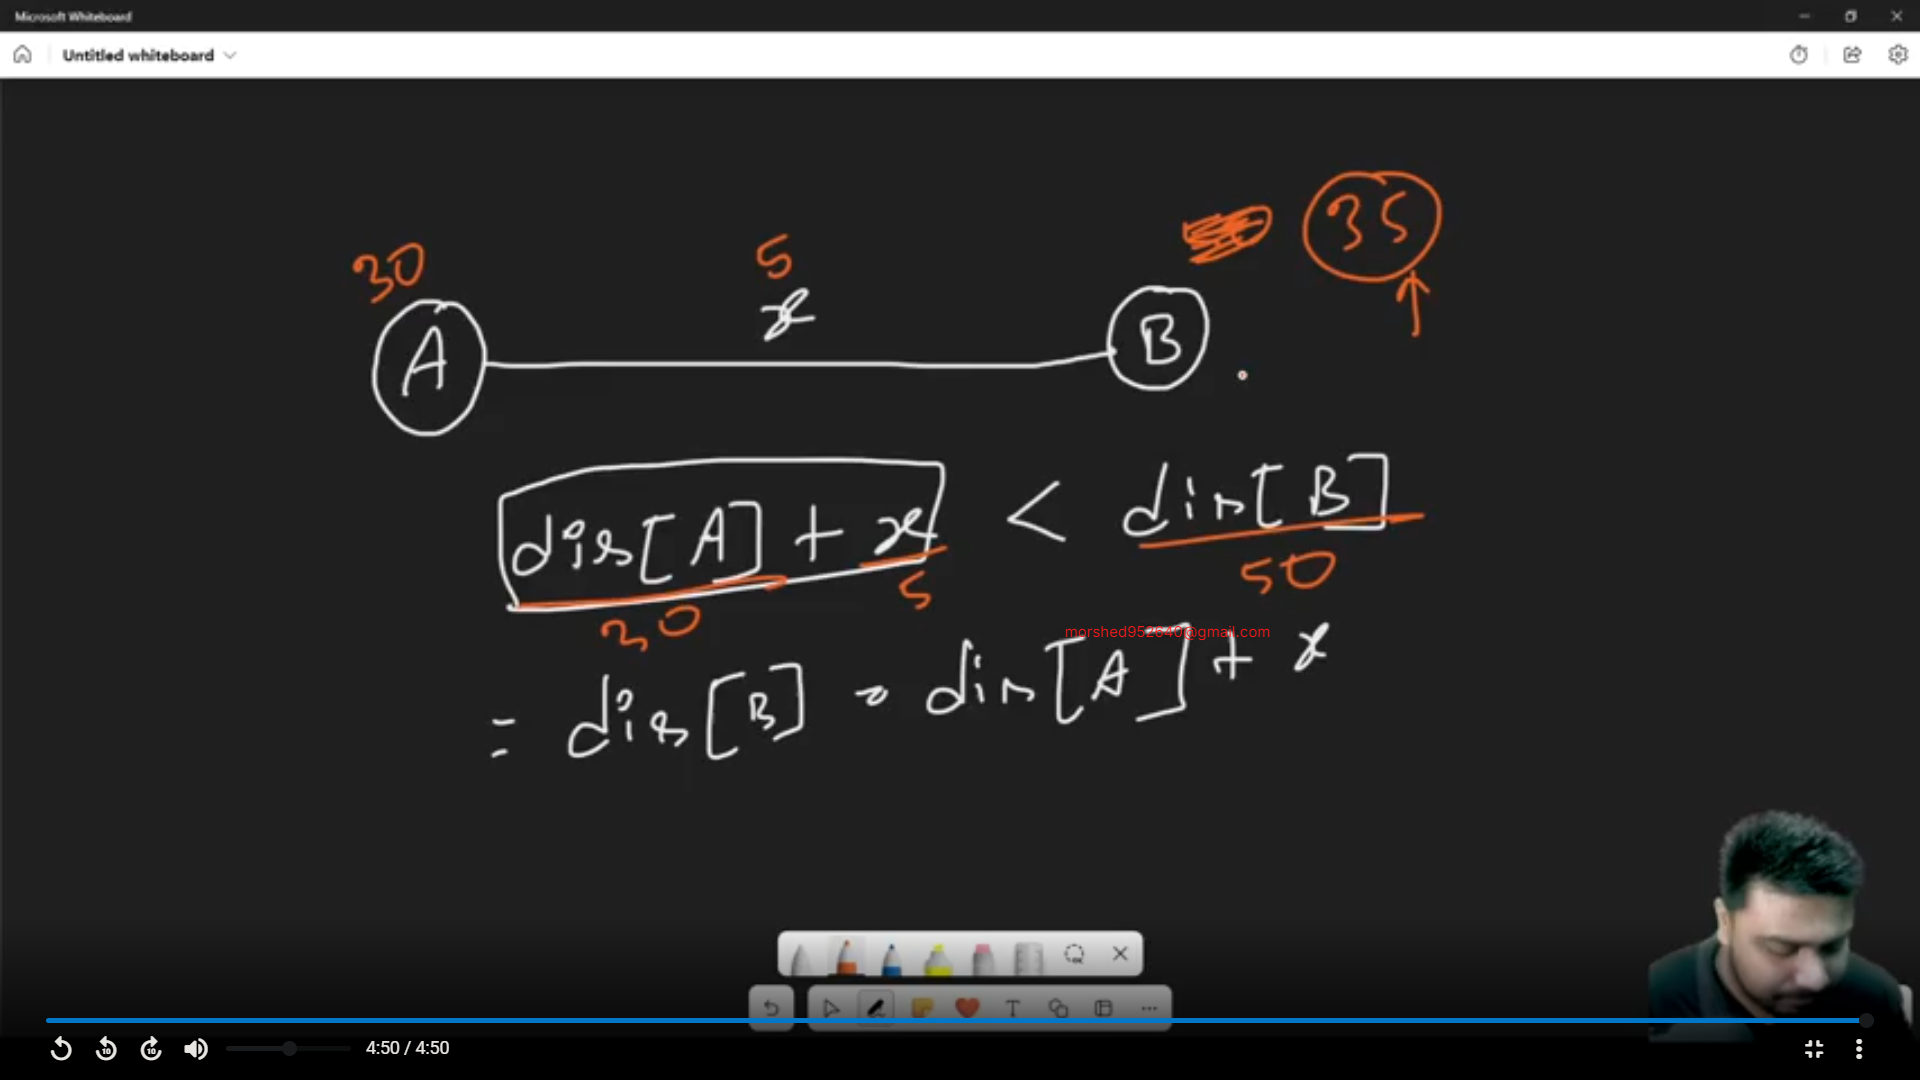 Microsoft Whiteboard
Untitled whiteboard
35
30
5
x
A
B
dis[A] + x < dis[B]
30
5
50
morshed952640@gmail.com
= dis[B] = dis[A] + x
10
10
T
4:50 / 4:50